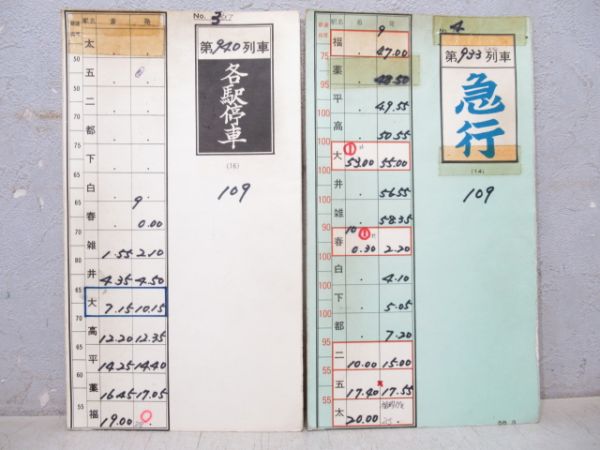 No. 3
駅名 着 発
太
五 . .
二 . .
都 . .
下 . .
白 . .
春 9 0.00
雑 1.55 2.10
井 4.35 4.50
大 7.15 10.15
高 12.20 12.35
平 14.25 14.40
薬 16.45 17.05
福 19.00
50
55
75
70
65
70
75
55
第940列車
各駅停車
(16)
109
No. 4
駅名 着 発
福 9 47.00
薬 48.50
平 . 49.55
高 . 50.55
大 53.00 55.00
井 . 56.55
雑 . 58.35
春 10 0.30 2.20
白 . 4.10
下 . 5.05
都 . 7.20
二 10.00 15.00
五 17.40 17.55
太 20.00
75
95
100
100
100
100
90
100
100
95
55
55
第933列車
急行
(14)
109